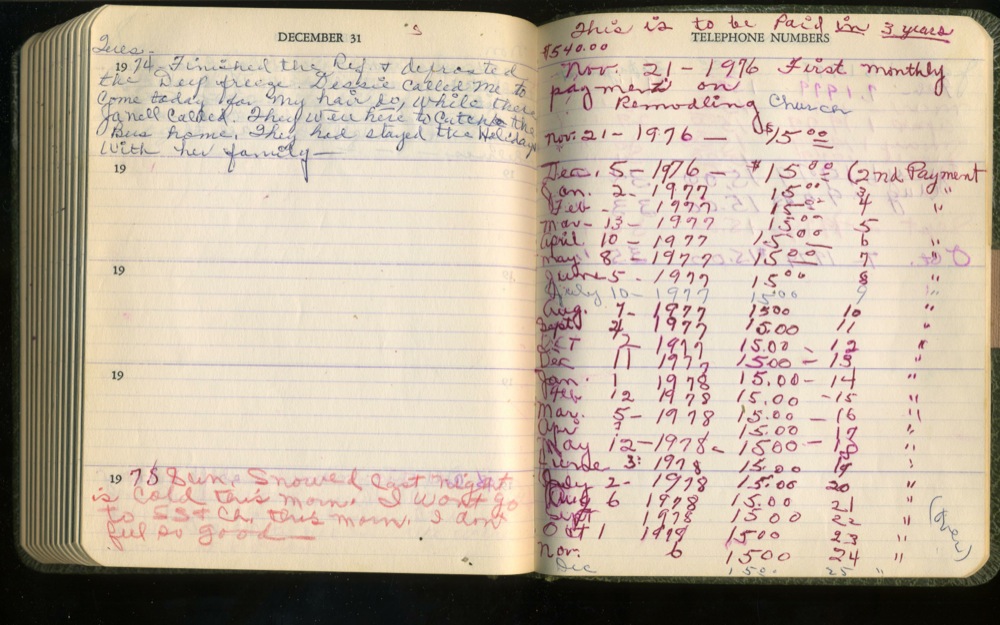 DECEMBER 31
Tues.
19 74 Finished the Ref & defrosted
the Deep freeze. Dessie called me to
Come today for my hair do, while there
Janell called. They were here to Catch the
Bus home, They had stayed the Holidays
With her family—
19
19
19
19 75 Sun, Snowed last night
is cold this morn. I wont go
to SS & Ch. this morn. I dont
feel so good—
This is to be Paid in 3 years
TELEPHONE NUMBERS
$540.00
Nov. 21 - 1976 First monthly
payment on
Remodling Church
Nov. 21 - 1976 — $15.00
Dec. 5 - 1976 — $15.00 (2nd Payment
Jan. 2 - 1977 15.00 3 "
Feb - 1977 15.00 4 "
Mar - 13 - 1977 15.00 5
April 10 - 1977 15.00 6 "
May 8 - 1977 15.00 7 "
June 5 - 1977 15.00 8 "
July 10 - 1977 15.00 9 "
Aug. 7 - 1977 15.00 10 "
Sept 4 - 1977 15.00 11 "
OCT 2 1977 15.00 - 12 "
Dec 11 1977 15.00 - 13 "
Jan. 1 1978 15.00 - 14 "
Feb. 12 1978 15.00 - 15 "
Mar. 5 - 1978 15.00 - 16 "
Apr 15.00 - 17 "
May 12 - 1978 - 15.00 - 18 "
June 3: 1978 15.00 19 "
July 2 - 1978 15.00 20 "
Aug 6 1978 15.00 21 "
Sept 1978 15.00 22 "
Oct 1 1978 15.00 23 "
Nov. 6 15.00 24 "
Dec 15.00 25 "
(over)